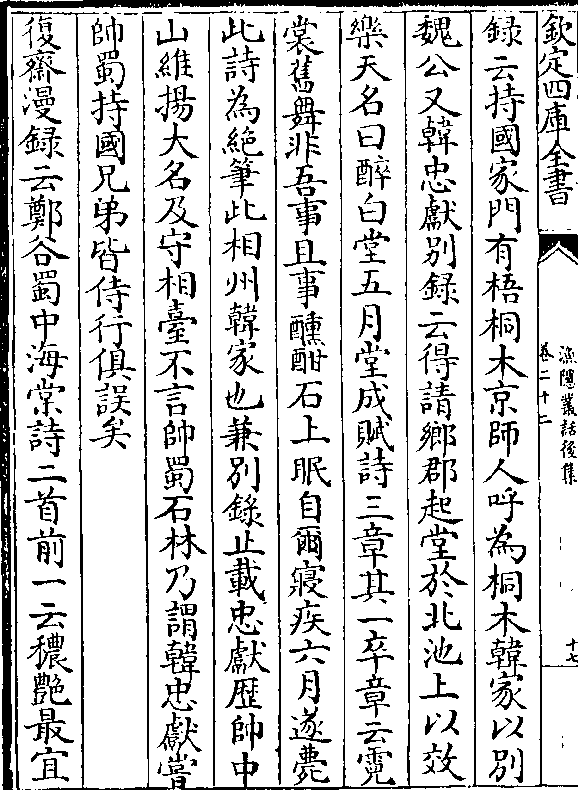 欽定四庫全書
漁隱叢話後集
卷二十二
十七
録云持國家門有梧桐木京師人呼為桐木韓家以别
魏公又韓忠獻别録云得請鄉郡起堂於北池上以效
樂天名曰醉白堂五月堂成賦詩三章其一卒章云霓
裳舊舞非吾事且事醺酣石上眠自爾寢疾六月遂薨
此詩為絶筆此相州韓家也兼别錄止載忠獻歴帥中
山維揚大名及守相臺不言帥蜀石林乃謂韓忠獻嘗
帥蜀持國兄弟皆侍行俱誤矣
復齋漫録云鄭谷蜀中海棠詩二首前一云穠艶最宜